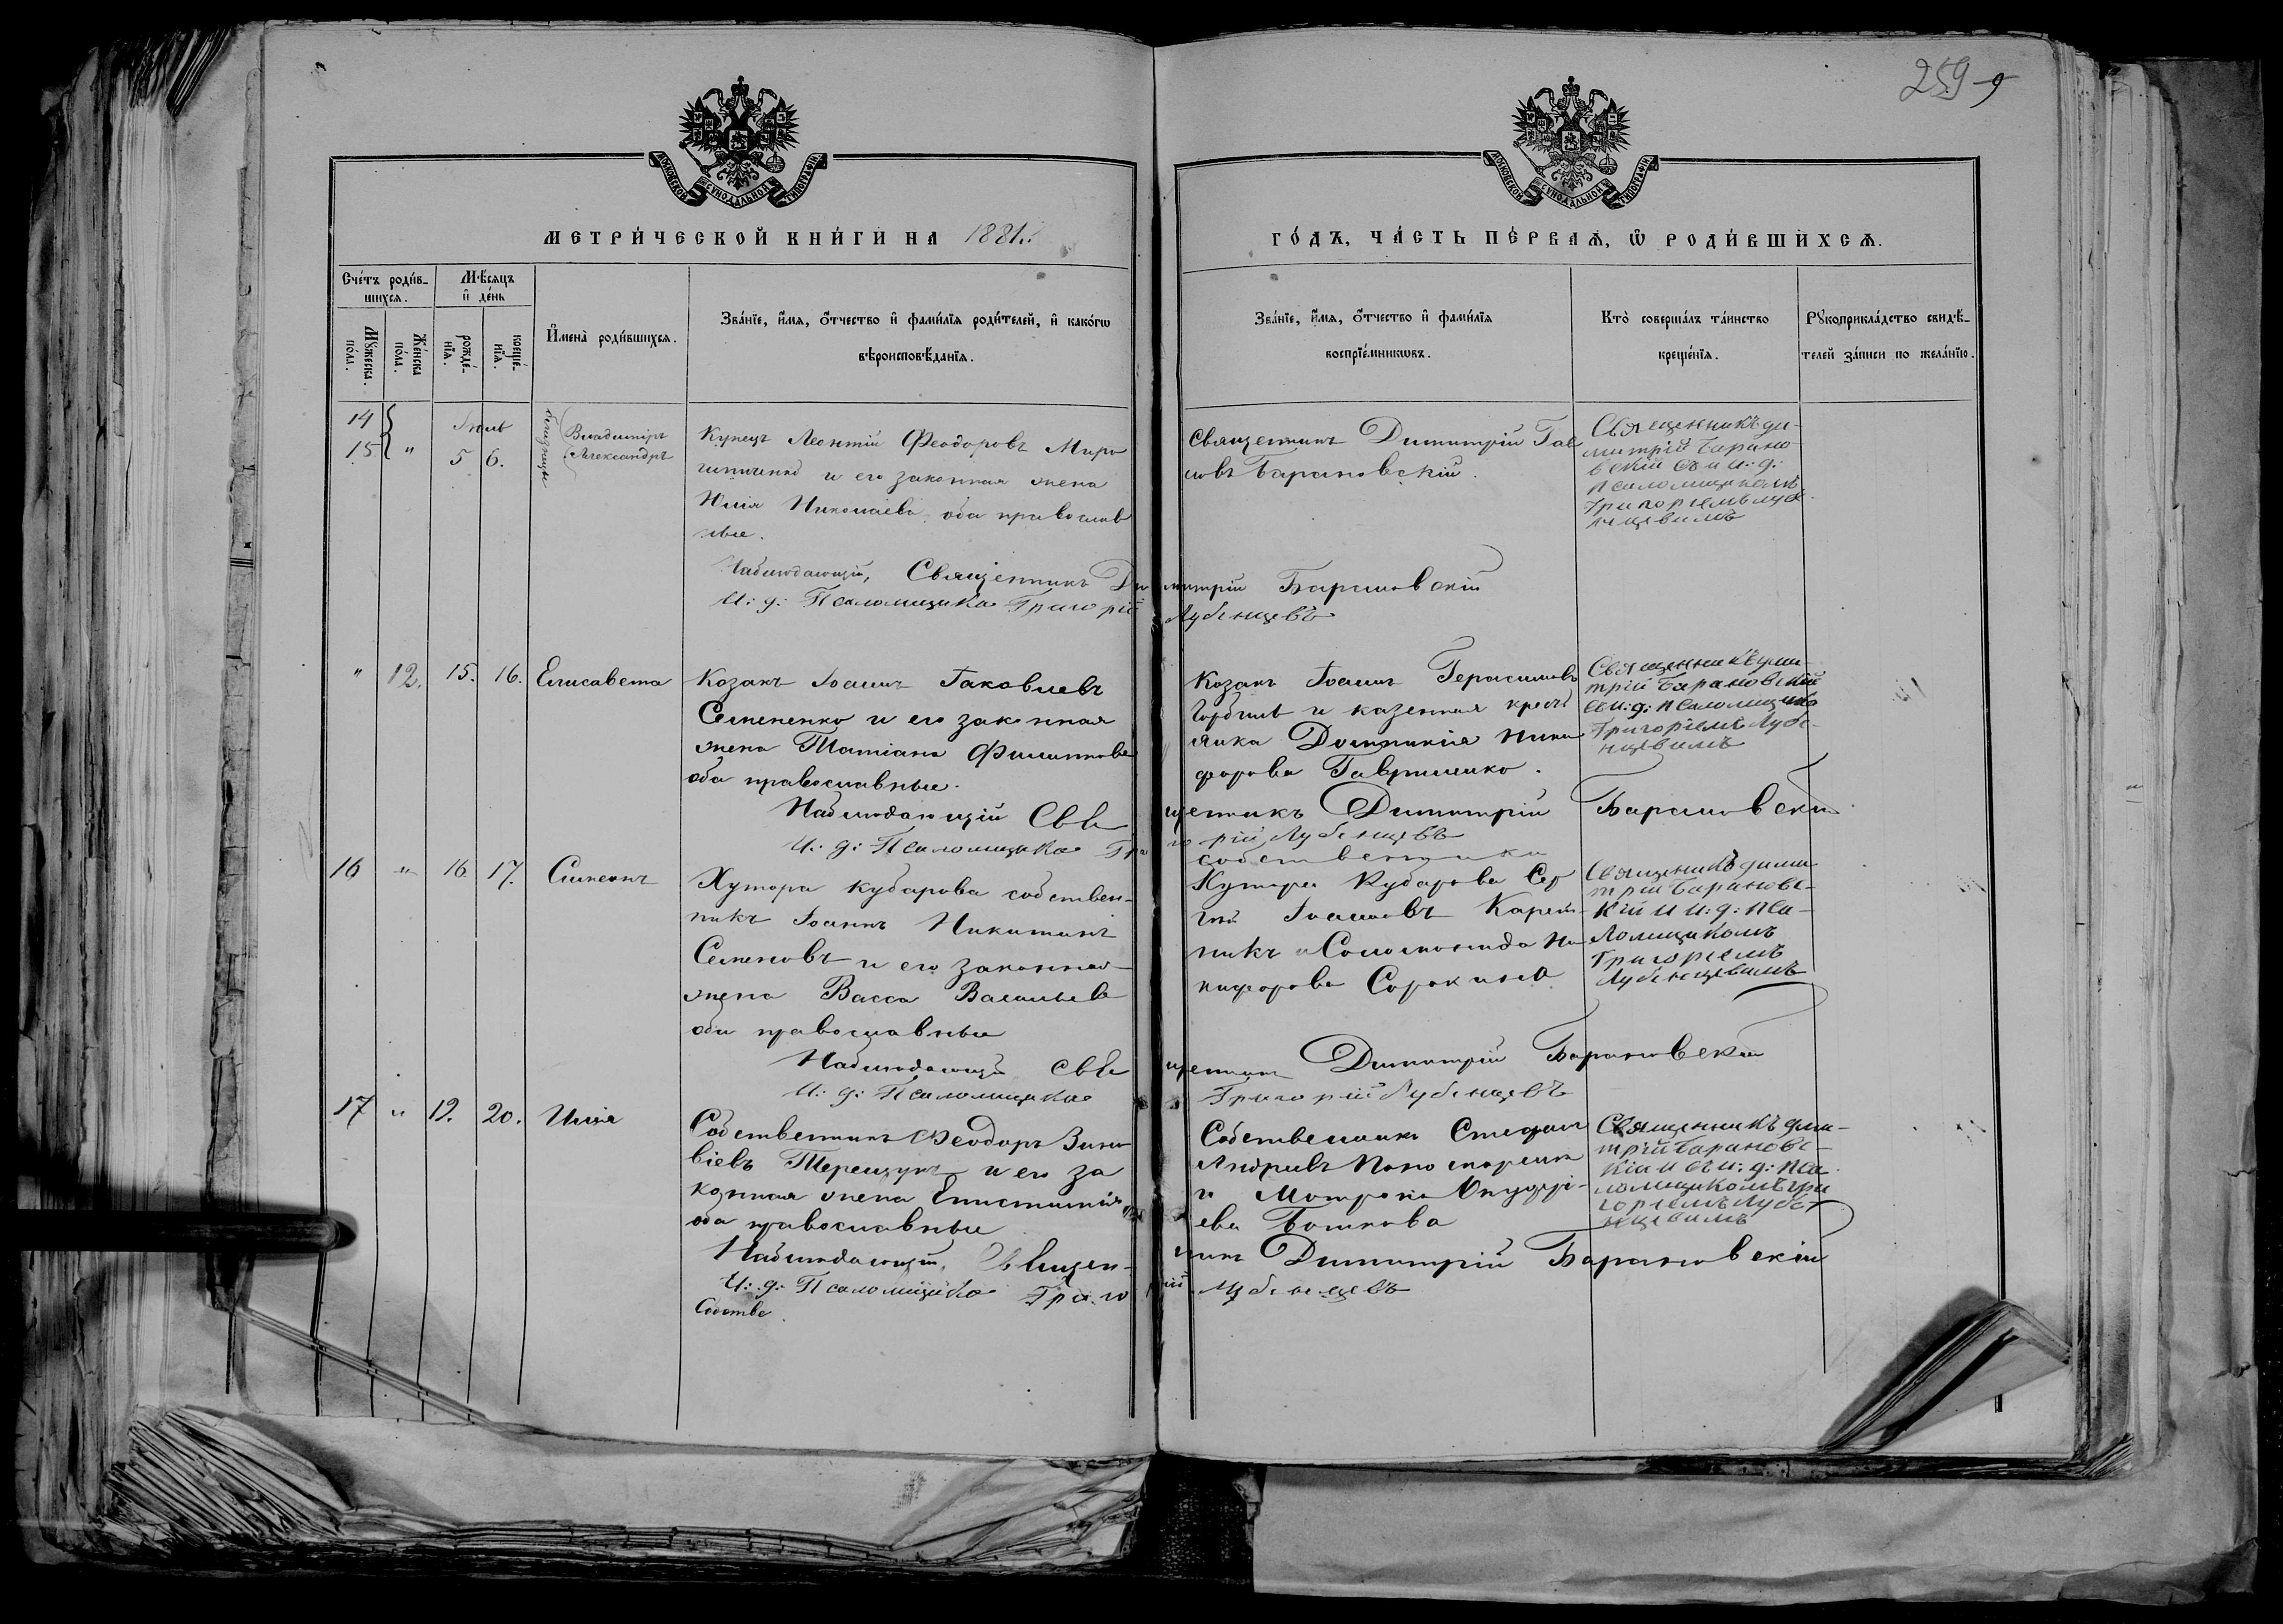 259
МОСКОВСКОЙ СѴНОДАЛЬНОЙ ТИПОГРАФІИ
МОСКОВСКОЙ СѴНОДАЛЬНОЙ ТИПОГРАФІИ
МЕТРИ́ЧЕСКОЙ КНИ́ГИ НА 1881
ГО́ДЪ, ЧА́СТЬ ПЕ́РВАѦ, Ѿ РОДИ́ВШИХСѦ.
Сче́тъ роди́в-
шихсѧ.
Мѣ́сѧцъ
и҆ де́нь
Мꙋ́жеска по́ла.
Же́нска по́ла.
рожде́-
нїѧ.
креще́-
нїѧ.
И҆мена̀ роди́вшихсѧ.
Зва́нїе, и҆́мѧ, ѻ҆́тчество и҆ фами́лїѧ роди́телей, и҆ како́гѡ
вѣроисповѣ́данїѧ.
Зва́нїе, и҆́мѧ, ѻ҆́тчество и҆ фами́лїѧ
воспрїе́мникѡвъ.
Кто̀ соверша́лъ та́инство
креще́нїѧ.
Рꙋкоприкла́дство свидѣ́-
телей за́писи по жела́нїю.
14
15 " 5 6.
близнецы
Владиміръ
Александръ
Купецъ Леонтій Феодоровъ Миро
и его законная жена
Юлія Николаева оба православ
ные.
Священникъ Димитрій Пав
ловъ Барановскій.
Священникъ Ди-
митрій Барано
вскій съ и: д:
псаломщикомъ
Григоріемъ Лубе
нцевымъ
Наблюдающій, Священникъ Димитрій Барановскій
И: д: Псаломщика Григорій Лубенцевъ
" 12. 15. 16. Елисавета
Козакъ Іоаннъ Іаковлевъ
Семененко и его законная
жена Татіана Филиппова
оба православные.
Козакъ Іоаннъ Герасимовъ
и казенная кресть
янка Домникія Ники
форова Гавриленко.
Священникъ Дими
трій Барановскій
съ и: д: псаломщико
Григоріемъ Лубе-
нцевымъ
Наблюдающій Священникъ Димитрій Барановскій
И: д: Псаломщика Григорій Лубенцевъ
16 " 16. 17. Симеонъ
Хутора Кубарова собствен-
никъ Іоаннъ Никитинъ
Семеновъ и его законная
жена Васса Васильева
оба православные
собственника
Хутора Кубарова Сер
гій Іоанновъ Карет-
никъ и Соломонида Ни
кифорова Сорокина
Священникъ Дими
трій Барановс-
кій и и: д: пса-
ломщикомъ
Григоріемъ
Лубенцевымъ
Наблюдающій Священникъ Димитрій Барановскій
И: д: Псаломщика Григорій Лубенцевъ
17 " 19. 20. Илія
Собственникъ Феодоръ Зино
віевъ Терещукъ и его за
конная жена Епистимія
оба православные
Собственникъ Стефанъ
Андреевъ Пономаренко
и Матрона Онуфрі-
ева Бошкова
Священникъ Дими
трій Барановс-
кій и съ и: д: пса
ломщикомъ Гри
горіемъ Лубе
нцевымъ
Наблюдающій, Священникъ Димитрій Барановскій
И: д: Псаломщика Григорій Лубенцевъ
Собстве